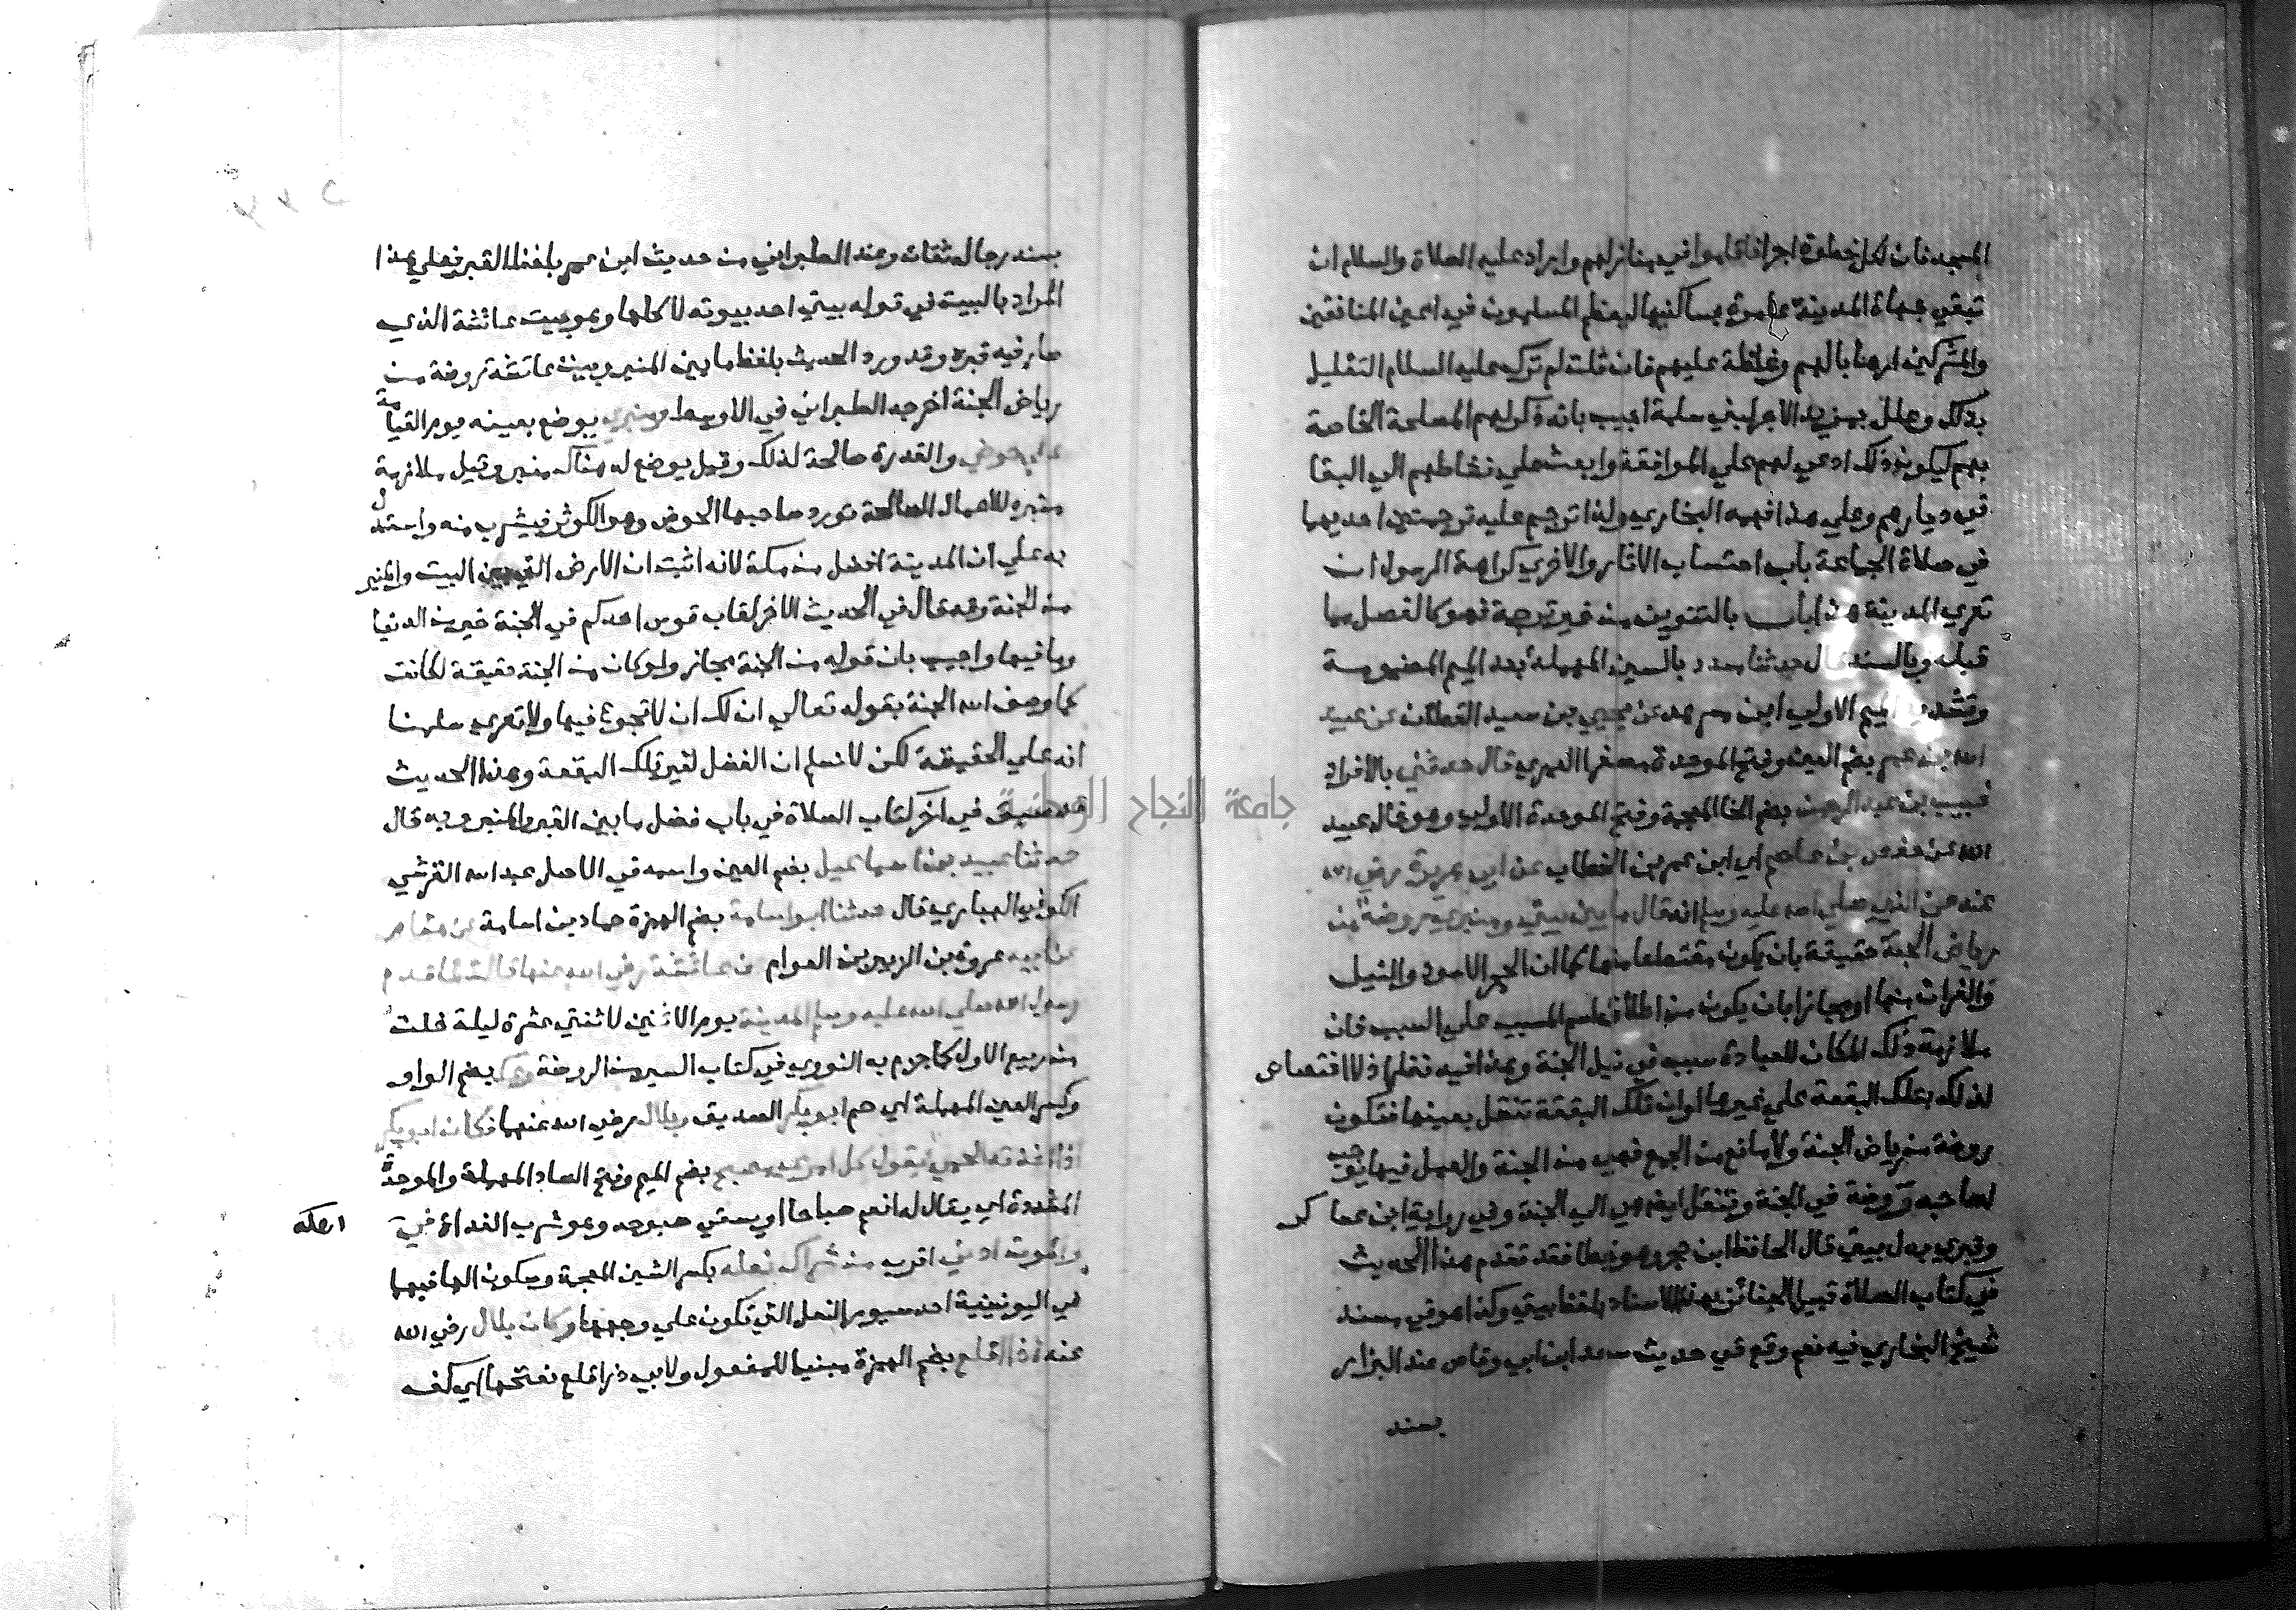 المسجد فان لكل خطوة اجرا فاقاموا في منازلهم واراد عليه الصلاة والسلام ان
تبقي جهاة المدينة عامرة بساكنيها ليعظم المسلمون في اعين المنافقين
والمشركين ارهابا لهم وغلظة عليهم فان قلت لم ترك عليه السلام التعليل
بذلك وعلل بمزيد الاجر لبني سلمة اجيب بانه ذكر لهم المصلحة الخاصة
بهم ليكون ذلك ادعي لهم علي الموافقة وابعث علي نشاطهم الي البقا
في ديارهم وعلي هذا فهمه البخاري ولذا ترجم عليه ترجمتين احديهما
في صلاة الجماعة باب احتساب الاثار والاخري كراهة الرسول ان
تعري المدينة هذا باب بالتنوين من غير ترجمة فهو كالفصل مما
قبله وبالسند قال حدثنا مسدد بالسين المهملة بعد الميم المضمومة
وتشديد الميم الاولي ابن مسرهد عن يحيي بن سعيد القطان عن عبيد
الله بن عمر بضم العين وفتح الموحدة مصغرا العمري قال حدثني بالافراد
خبيب بن عبد الرحمن بضم الخا المعجمة وفتح الموحدة الاولي وهو خال عبيد
الله عن حفص بن عاصم اي ابن عمر بن الخطاب عن ابي هريرة رضي الله
عنه عن النبي صلي الله عليه وسلم انه قال ما بين بيتي ومنبري روضة من
رياض الجنة حقيقة بان يكون مقتطعا منها كما ان الحجر الاسود والنيل
والفرات منها او مجازا بان يكون من اطلاق اسم المسبب علي السبب فان
ملازمة ذلك المكان للعبادة سبب في نيل الجنة وهذا فيه نظر اذ لا اختصاص
لذلك بتلك البقعة علي غيرها او ان تلك البقعة تنقل بعينها فتكون
روضة من رياض الجنة ولا مانع من الجمع فهي من الجنة والعمل فيها يوجب
لصاحبه روضة في الجنة وتنقل ايضا هي الي الجنة وفي رواية ابن عساكر
وقبري بدل بيتي قال الحافظ ابن حجر وهو خطا فقد تقدم هذا الحديث
في كتاب الصلاة قبيل الجنائز بهذا الاسناد بلفظ بيتي وكذا هو في مسند
شيخ البخاري فيه نعم وقع في حديث سعد ابن ابي وقاص عند البزار
بسند
بسند رجاله ثقات وعند الطبراني من حديث ابن عمر بلفظ القبر فعلي هذا
المراد بالبيت في قوله بيتي احد بيوته لا كلها وهو بيت عائشة الذي
صار فيه قبره وقد ورد الحديث بلفظ ما بين المنبر وبيت عائشة روضة من
رياض الجنة اخرجه الطبراني في الاوسط ومنبري يوضع بعينه يوم القيامة
علي حوضي والقدرة صالحة لذلك وقيل يوضع له هناك منبر وقيل ملازمة
منبره للاعمال الصالحة تورد صاحبها الحوض وهو الكوثر فيشرب منه واستدل
به علي ان المدينة افضل من مكة لانه اثبت ان الارض التي بين البيت والمنبر
من الجنة وقد قال في الحديث الاخر لقاب قوس احدكم في الجنة خير من الدنيا
وما فيها واجيب بان قوله من الجنة مجاز ولو كان من الجنة حقيقة لكانت
كما وصف الله الجنة بقوله تعالي ان لك ان لا تجوع فيها ولا تعري سلمنا
انه علي الحقيقة لكن لا نسلم ان الفضل لغير تلك البقعة وهذا الحديث
قد سبق في اخر كتاب الصلاة في باب فضل ما بين القبر والمنبر وبه قال
حدثنا عبيد بن اسماعيل بضم العين واسمه في الاصل عبد الله القرشي
الكوفي الهباري قال حدثنا ابو اسامة بضم الهمزة حماد بن اسامة عن هشام
عن ابيه عروة بن الزبير بن العوام عن عائشة رضي الله عنها قالت لما قدم
رسول الله صلي الله عليه وسلم المدينة يوم الاثنين لاثنتي عشرة ليلة خلت
من ربيع الاول كما جزم به النووي في كتاب السير من الروضة وعك بضم الواو
وكسر العين المهملة اي حم ابو بكر الصديق وبلال رضي الله عنهما فكان ابو بكر
اذا اخذته الحمي يقول كل امرئ مصبح بضم الميم وفتح الصاد المهملة والموحدة
المشددة اي يقال له انعم صباحا او يسقي صبوحه وهو شرب الغداة في
اهله
والموت ادني اقرب من شراك نعله بكسر الشين المعجمة وسكون الها فيهما
في اليونينية احد سيور النعل التي تكون علي وجهها وكان بلال رضي الله
عنه اذا اقلع بضم الهمزة مبنيا للمفعول ولابي ذر اقلع بفتحها اي كف
جامعة النجاح الوطنية